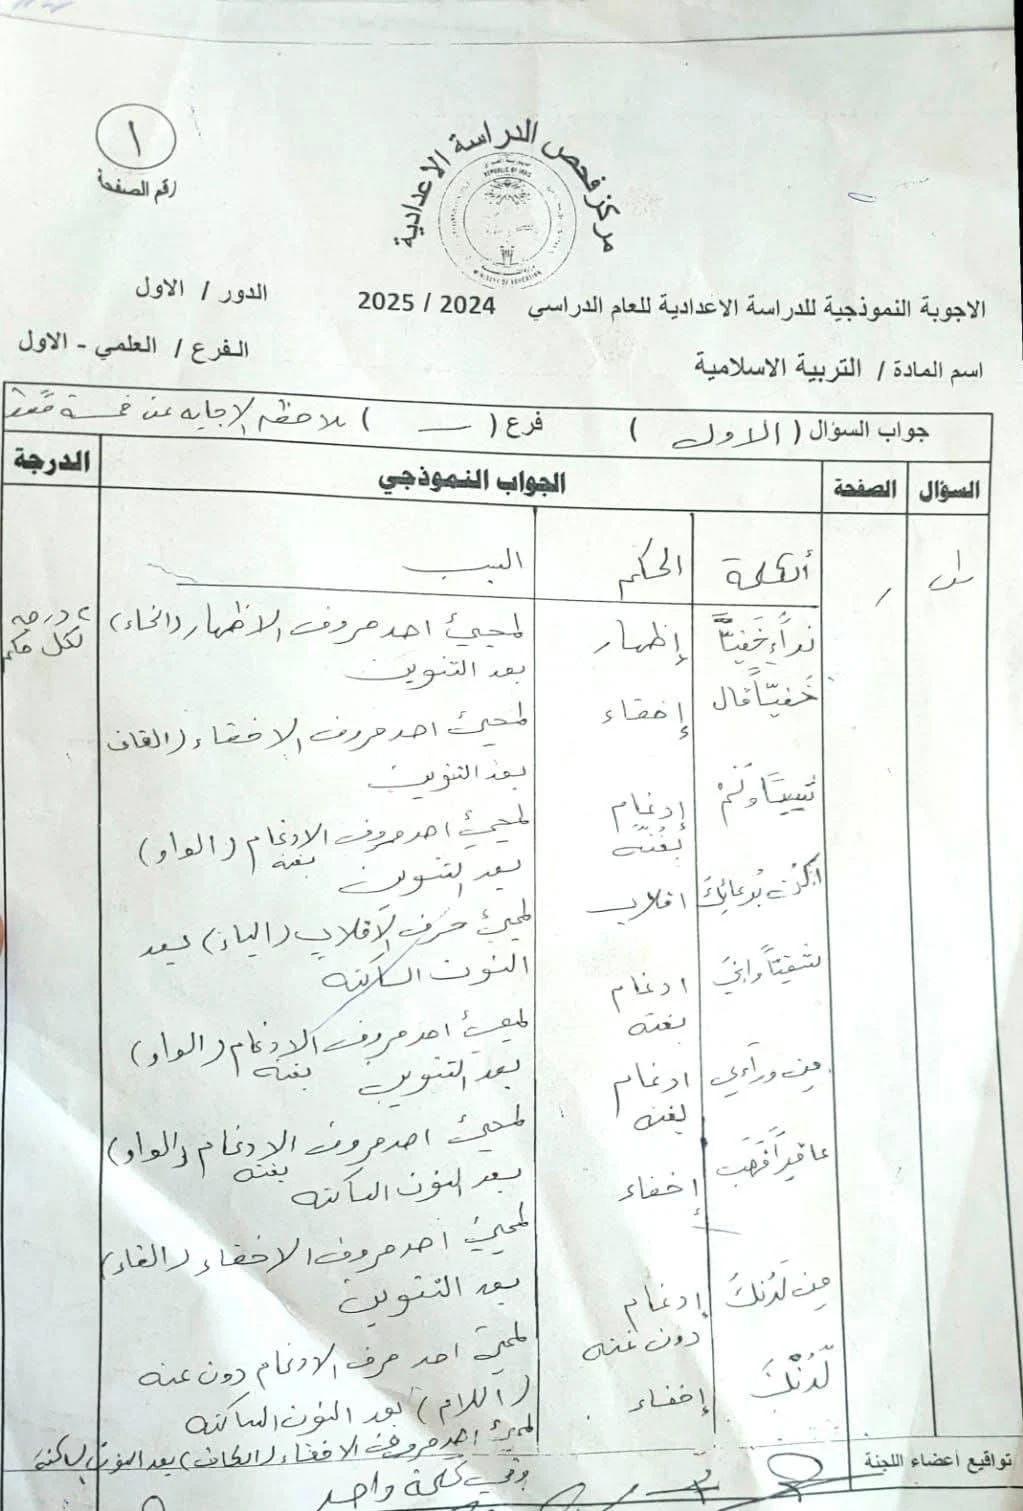 ١
رقم الصفحة
مركز فحص الدراسة الاعدادية
REPUBLIC OF IRAQ
MINISTRY OF EDUCATION
الاجوبة النموذجية للدراسة الاعدادية للعام الدراسي 2024 / 2025 الدور / الاول
اسم المادة / التربية الاسلامية الفرع / العلمي - الاول
جواب السؤال ( الاول ) فرع ( ــ ) ملاحظه الإجابه عن خمسة فقط
السؤال الصفحة الجواب النموذجي الدرجة
س١ الكلمة الحكم السبب
نداءً خَفيّاً إظهار لمجيئ احد حروف الاظهار (الخاء) ٢ درجه
بعد التنوين لكل حكم
خَفيّاً قال إخفاء لمجيئ احد حروف الإخفاء (القاف
بعد التنوين
شيباً ولم إدغام بغنّه لمجيئ احد حروف الادغام بغنه (الواو)
بعد التنوين
أكن بدعائك اقلاب لمجيئ حرف الإقلاب (الباء) بعد
النون الساكنه
شقيّاً واني ادغام بغنه لمجيئ احد حروف الادغام بغنه (الواو)
بعد التنوين
من ورآءي ادغام بغنه لمجيئ احد حروف الادغام بغنه (الواو)
بعد النون الساكنه
عاقراً فهب إخفاء لمجيئ احد حروف الاخفاء (الفاء)
بعد التنوين
من لدنك إدغام دون غنه لمجيئ احد حرف الادغام دون غنه
(اللام) بعد النون الساكنه
لّدُنْكَ إخفاء لمجيئ احد حروف الاخفاء (الكاف) بعد النون الساكنه
وفي كلمة واحد
تواقيع أعضاء اللجنة